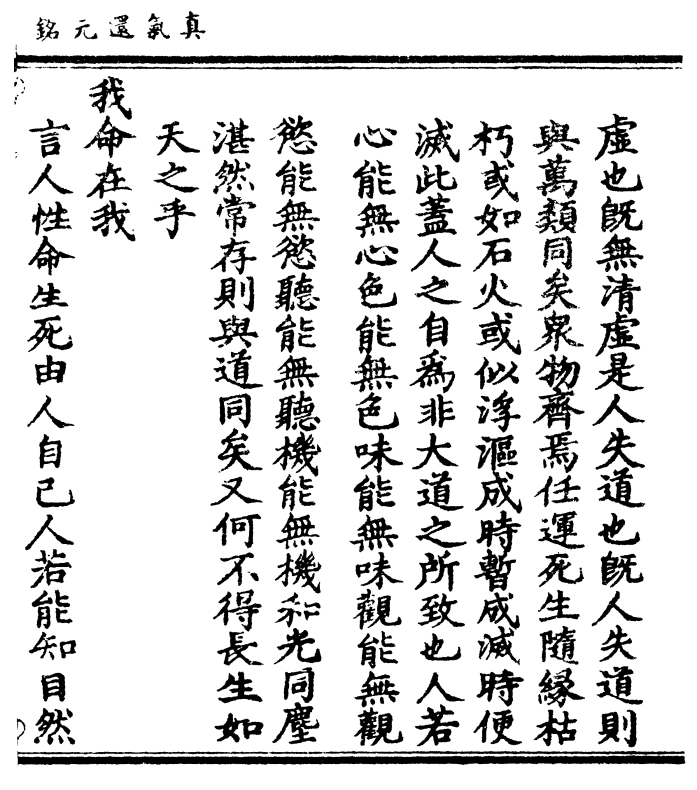 真氣還元銘
虛也旣無清虛是人失道也旣人失道則
與萬類同矣衆物齊焉任運死生隨緣枯
朽或如石火或似浮漚成時暫成滅時便
滅此蓋人之自爲非大道之所致也人若
心能無心色能無色味能無味觀能無觀
慾能無慾聽能無聽機能無機和光同塵
湛然常存則與道同矣又何不得長生如
天之乎
我命在我
言人性命生死由人自己人若能知自然